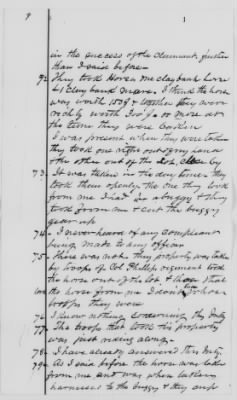 in the success of the claimant, further
than I said before.
72. They took Horses one claybank horse
& 1 clay bank mare. I think the horse
was worth 150$ & together they were
richly worth or more at
the time they were taken
I was present when they were taken
they took one right out of my hand
& the other out of the lot, close by
73. It was taken in the day time. they
took them openly. the one they took
from me I had in a buggy & they
took from me & cut the buggy
gear up
74. I never heard of any complaint
being made to any officer
75. There was not. They property was taken
by troops of Col regiment took
the horse out of the lot, & those that
took the horse from me I could not hear whose
troops they were
76. I know nothing concerning this Inty.
77. The troops that took this property
was just riding along.
78. I have already answered this Inty.
79. As I said before the horse was taken
from me and was when taken
harnessed to the buggy & they cup